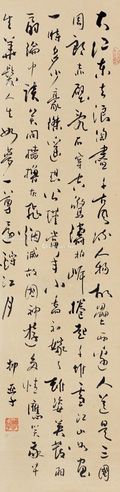 大江東去浪淘盡千古風流人物故壘西邊人道是三國
周郎赤壁亂石穿空驚濤拍岸捲起千堆雪江山如畫
一時多少豪傑遙想公瑾當年小喬初嫁了雄姿英發羽
扇綸巾談笑間檣櫓灰飛煙滅故國神遊多情應笑我早
生華髮人生如夢一尊還酹江月
柳亞子